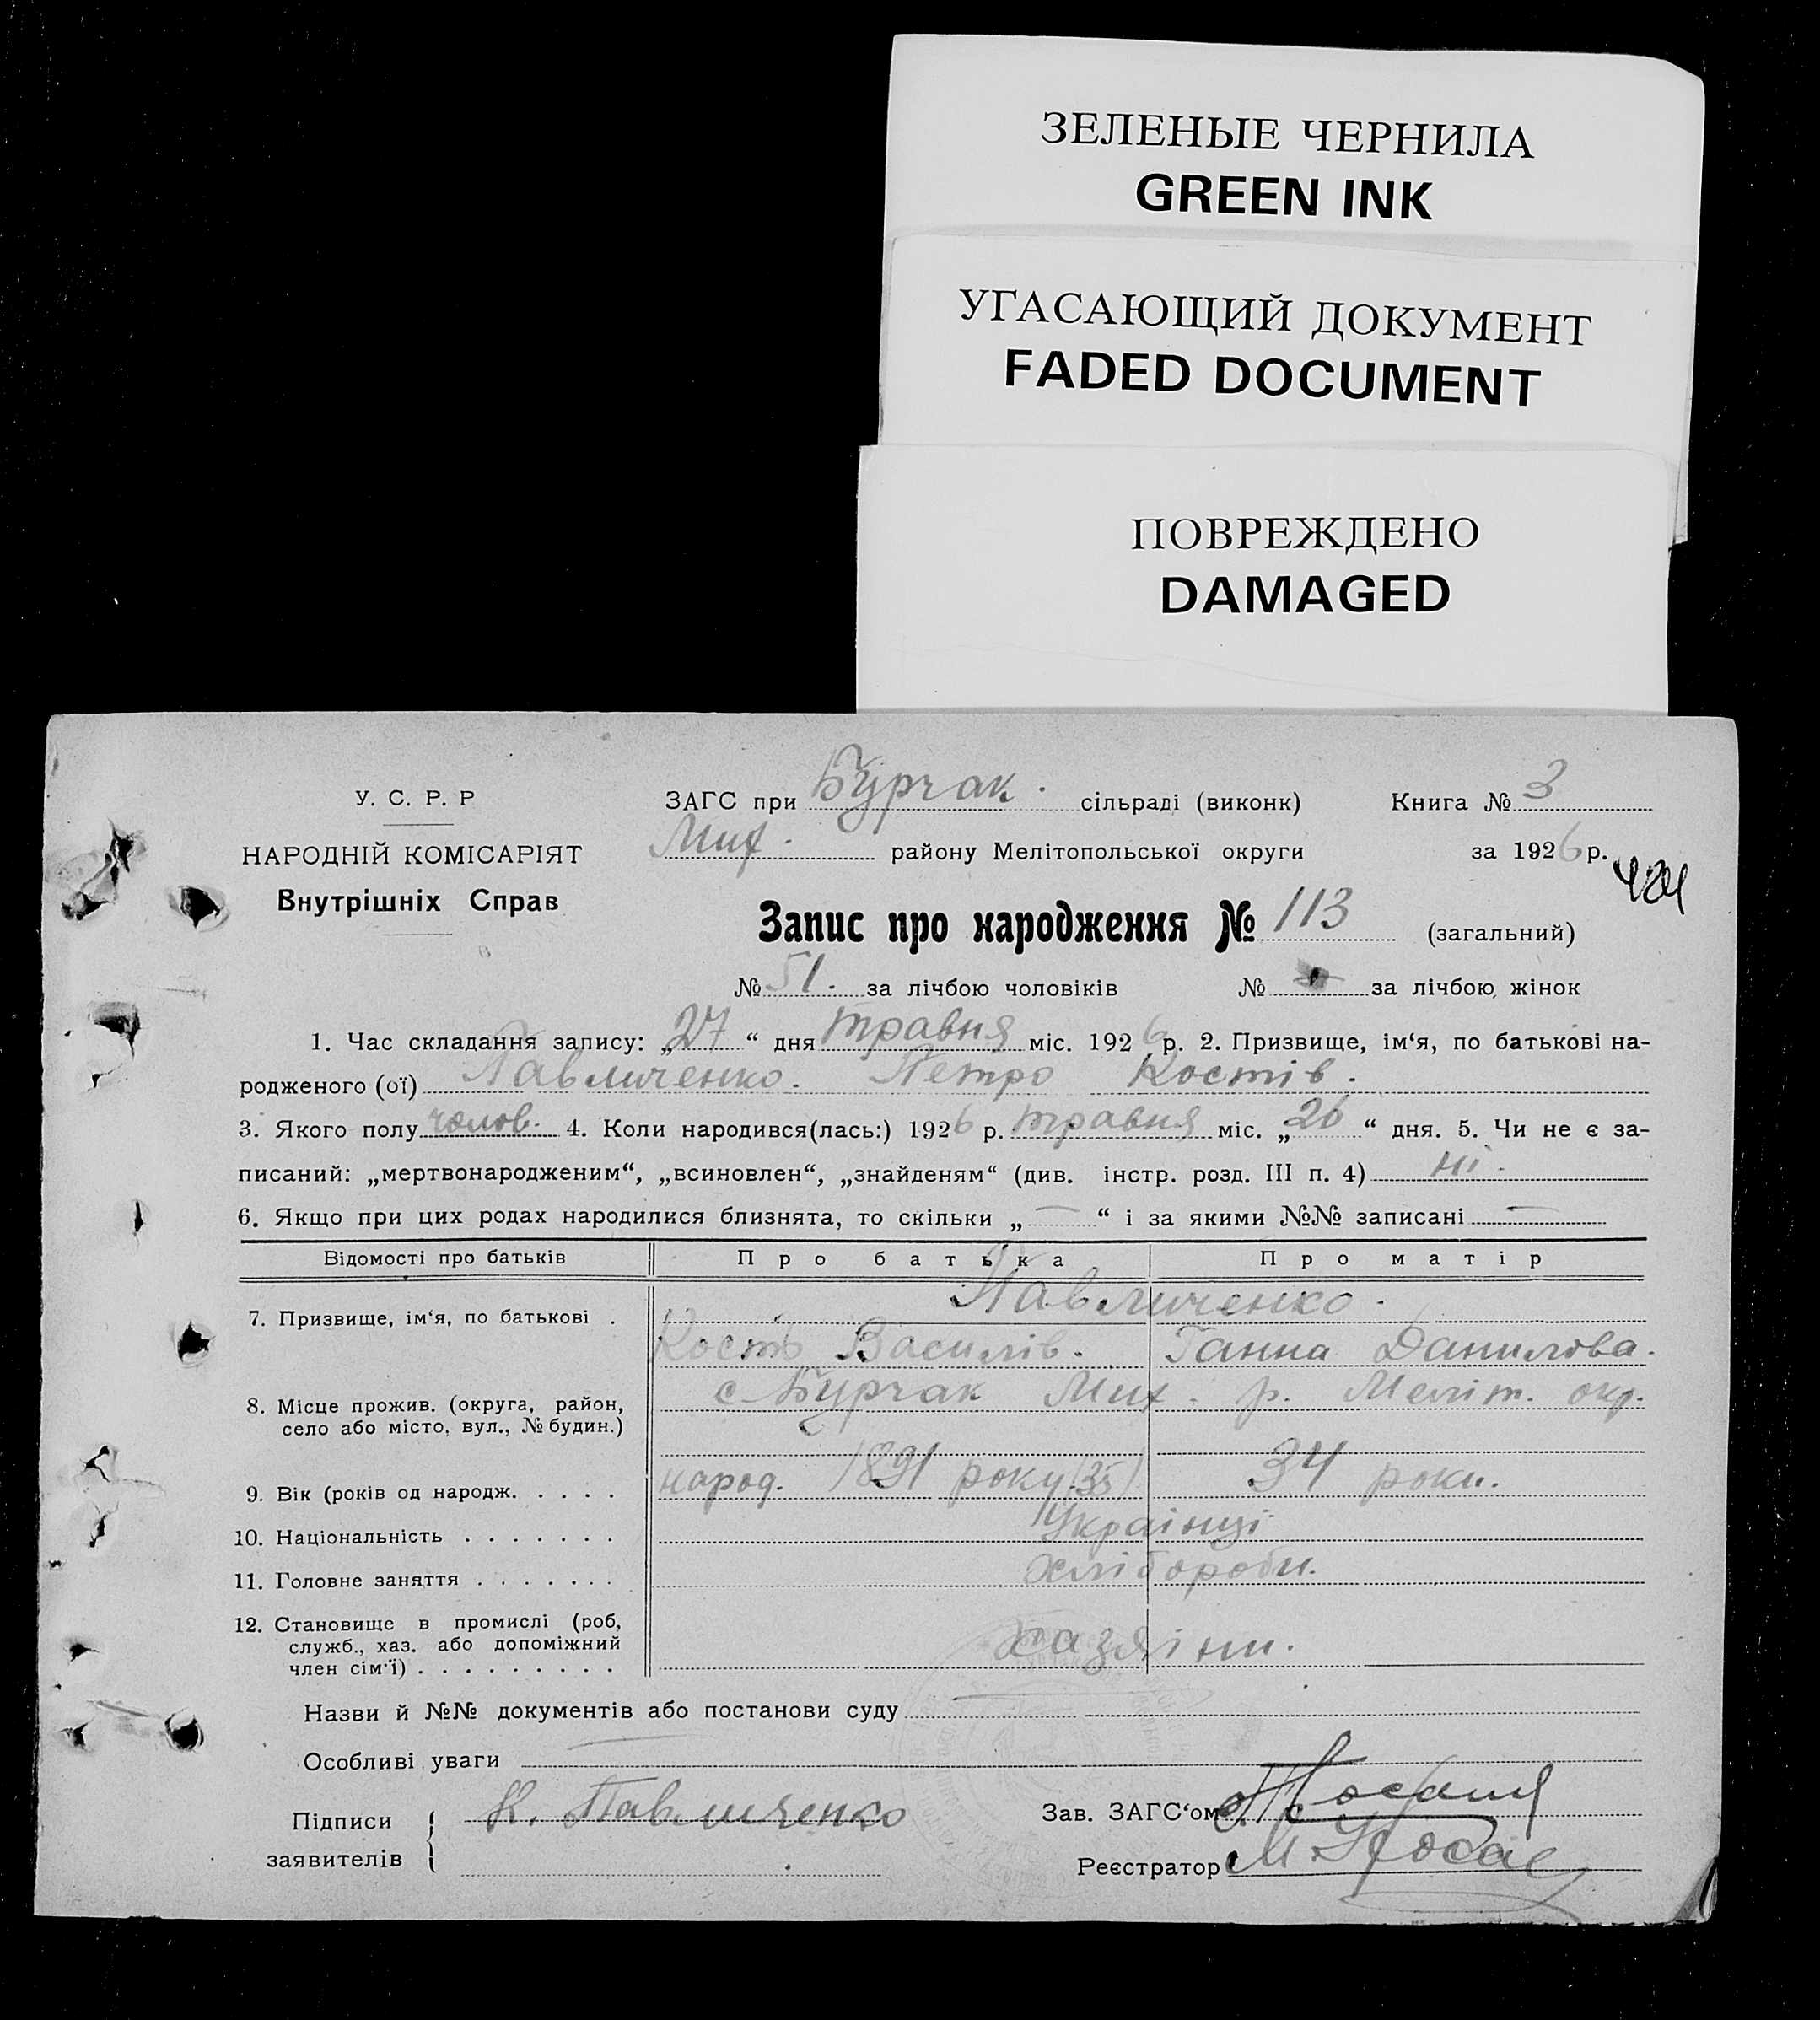 ЗЕЛЕНЫЕ ЧЕРНИЛА
GREEN INK
УГАСАЮЩИЙ ДОКУМЕНТ
FADED DOCUMENT
ПОВРЕЖДЕНО
DAMAGED
У. С. Р. Р
НАРОДНІЙ КОМІСАРІЯТ
Внутрішніх Справ
ЗАГС при Бурчак. сільраді (виконк) Книга № 3
Мих. району Мелітопольської округи за 1926 р.
424
Запис про народження № 113 (загальний)
№ 51. за лічбою чоловіків № за лічбою жінок
1. Час складання запису: „27“ дня травня міс. 1926 р. 2. Призвище, ім‘я, по батькові на-
родженого (ої) Павличенко. Петро Костів.
3. Якого полу чолов. 4. Коли народився(лась:) 1926 р. травня міс. „26“ дня. 5. Чи не є за-
писаний: „мертвонародженим“, „всиновлен“, „знайденям“ (див. інстр. розд. III п. 4) ні.
6. Якщо при цих родах народилися близнята, то скільки „—“ і за якими №№ записані —
Відомості про батьків Про батька Про матір
Павличенко.
7. Призвище, ім‘я, по батькові .
Кость Василів. Ганна Данилова.
с Бурчак Мих. р. Меліт. окр.
8. Місце прожив. (округа, район,
село або місто, вул., № будин.)
9. Вік (років од народж. . . . . народ. 1891 року (35) 34 роки.
10. Національність . . . . . . . Українці
11. Головне заняття . . . . . . . хлібороби.
12. Становище в промислі (роб,
служб., хаз. або допоміжний
член сім‘ї) . . . . . . . . . хазяїни.
Назви й №№ документів або постанови суду
Особливі уваги
Підписи К. Павличенко Зав. ЗАГС‘ом
заявителів Реєстратор